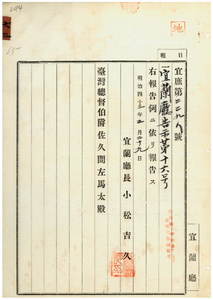 地
日
報
宜庶第二二九八號
宜蘭廳告示第十六号
右報告例ニ依リ報告ス
明治四十三年五月二十九日
宜蘭廳長 小松吉久
臺灣總督伯爵佐久間左馬太殿
宜蘭廳